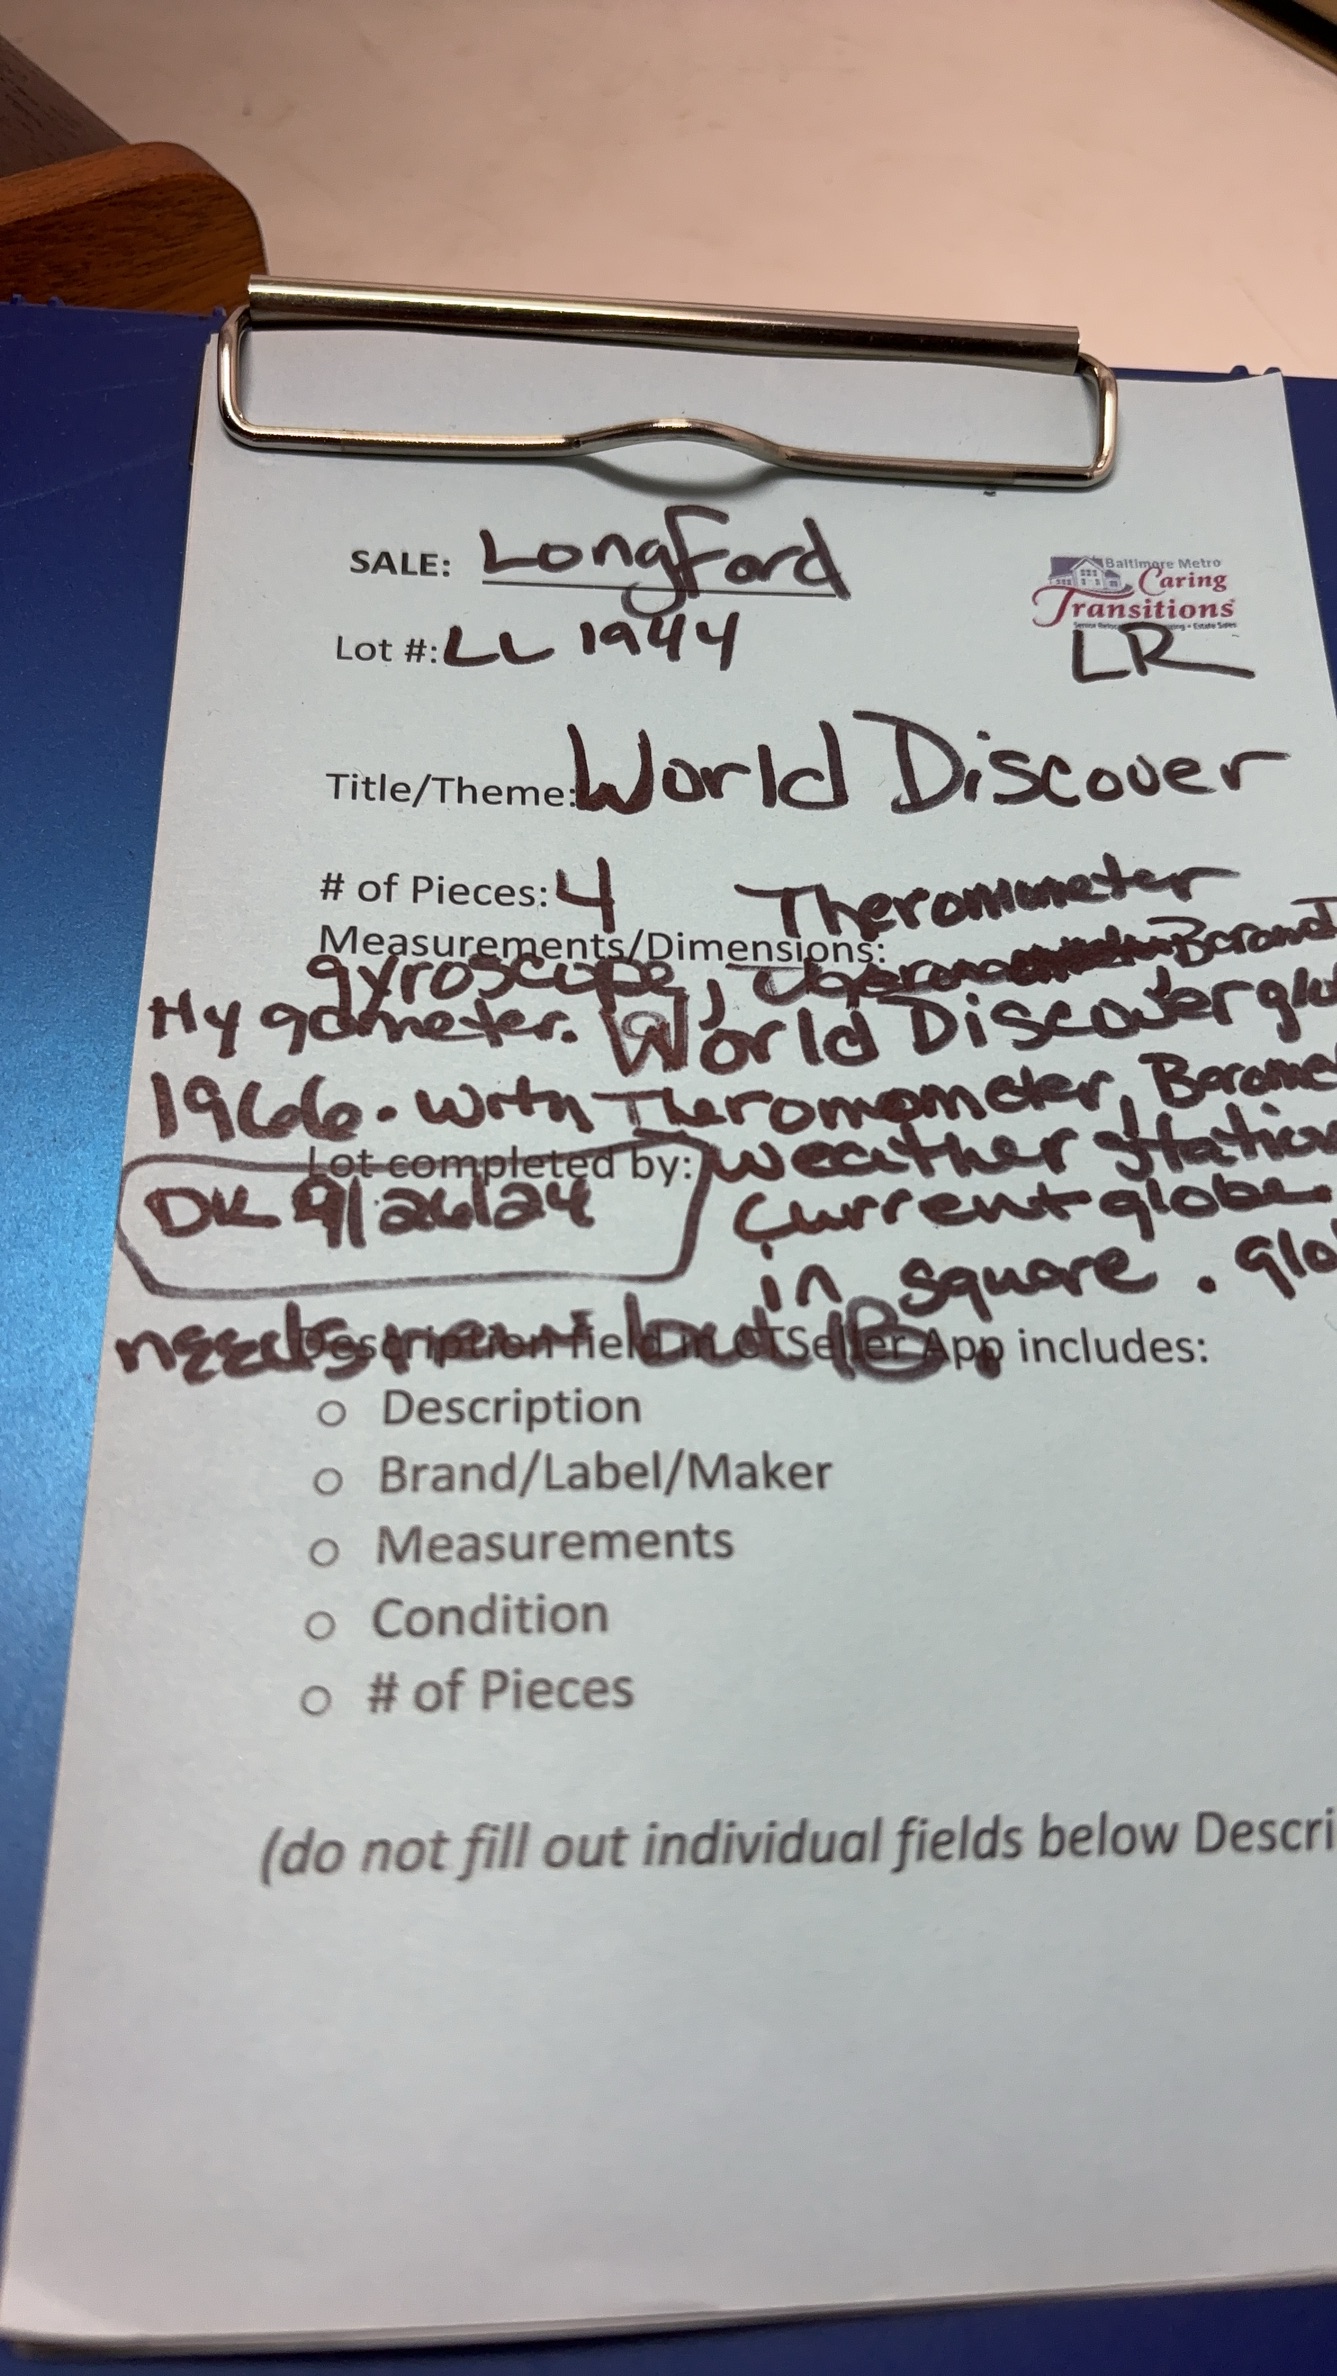 SALE: Longford
Baltimore Metro
Caring
Transitions
Lot #: LL 1944
LR
Title/Theme: World Discover
# of Pieces: 4 Theromometer
Measurements/Dimensions:
gyroscope,
Hygameter. World Discover
1966. with Theromometer,
Lot completed by: weather station
DK 9/26/24 Current globe
in square.
needs new
Description field in CTSeller App includes:
o Description
o Brand/Label/Maker
o Measurements
o Condition
o # of Pieces
(do not fill out individual fields below Descri